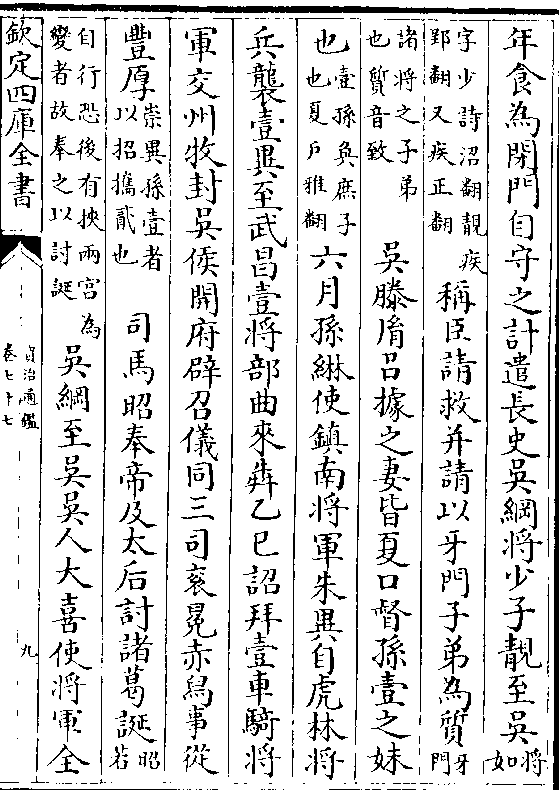 年食為閉門自守之計遣長史吳綱將少子靚至吳將如
字少詩沼翻靚疾郢翻又疾正翻稱臣請救并請以牙門子弟為質牙門
諸將之子弟也質音致吳滕胤呂據之妻皆夏口督孫壹之妹
也壹孫奐庶子也夏戶雅翻六月孫綝使鎮南將軍朱異自虎林將
兵襲壹異至武昌壹將部曲來犇乙巳詔拜壹車騎將
軍交州牧封吳侯開府辟召儀同三司袞冕赤舄事從
豐厚崇異孫壹者以招攜貳也司馬昭奉帝及太后討諸葛誕昭若
自行恐後有挾兩宮為變者故奉之以討誕吳綱至吳吳人大喜使將軍全
欽定四庫全書
資治通鑑
卷七十七
九